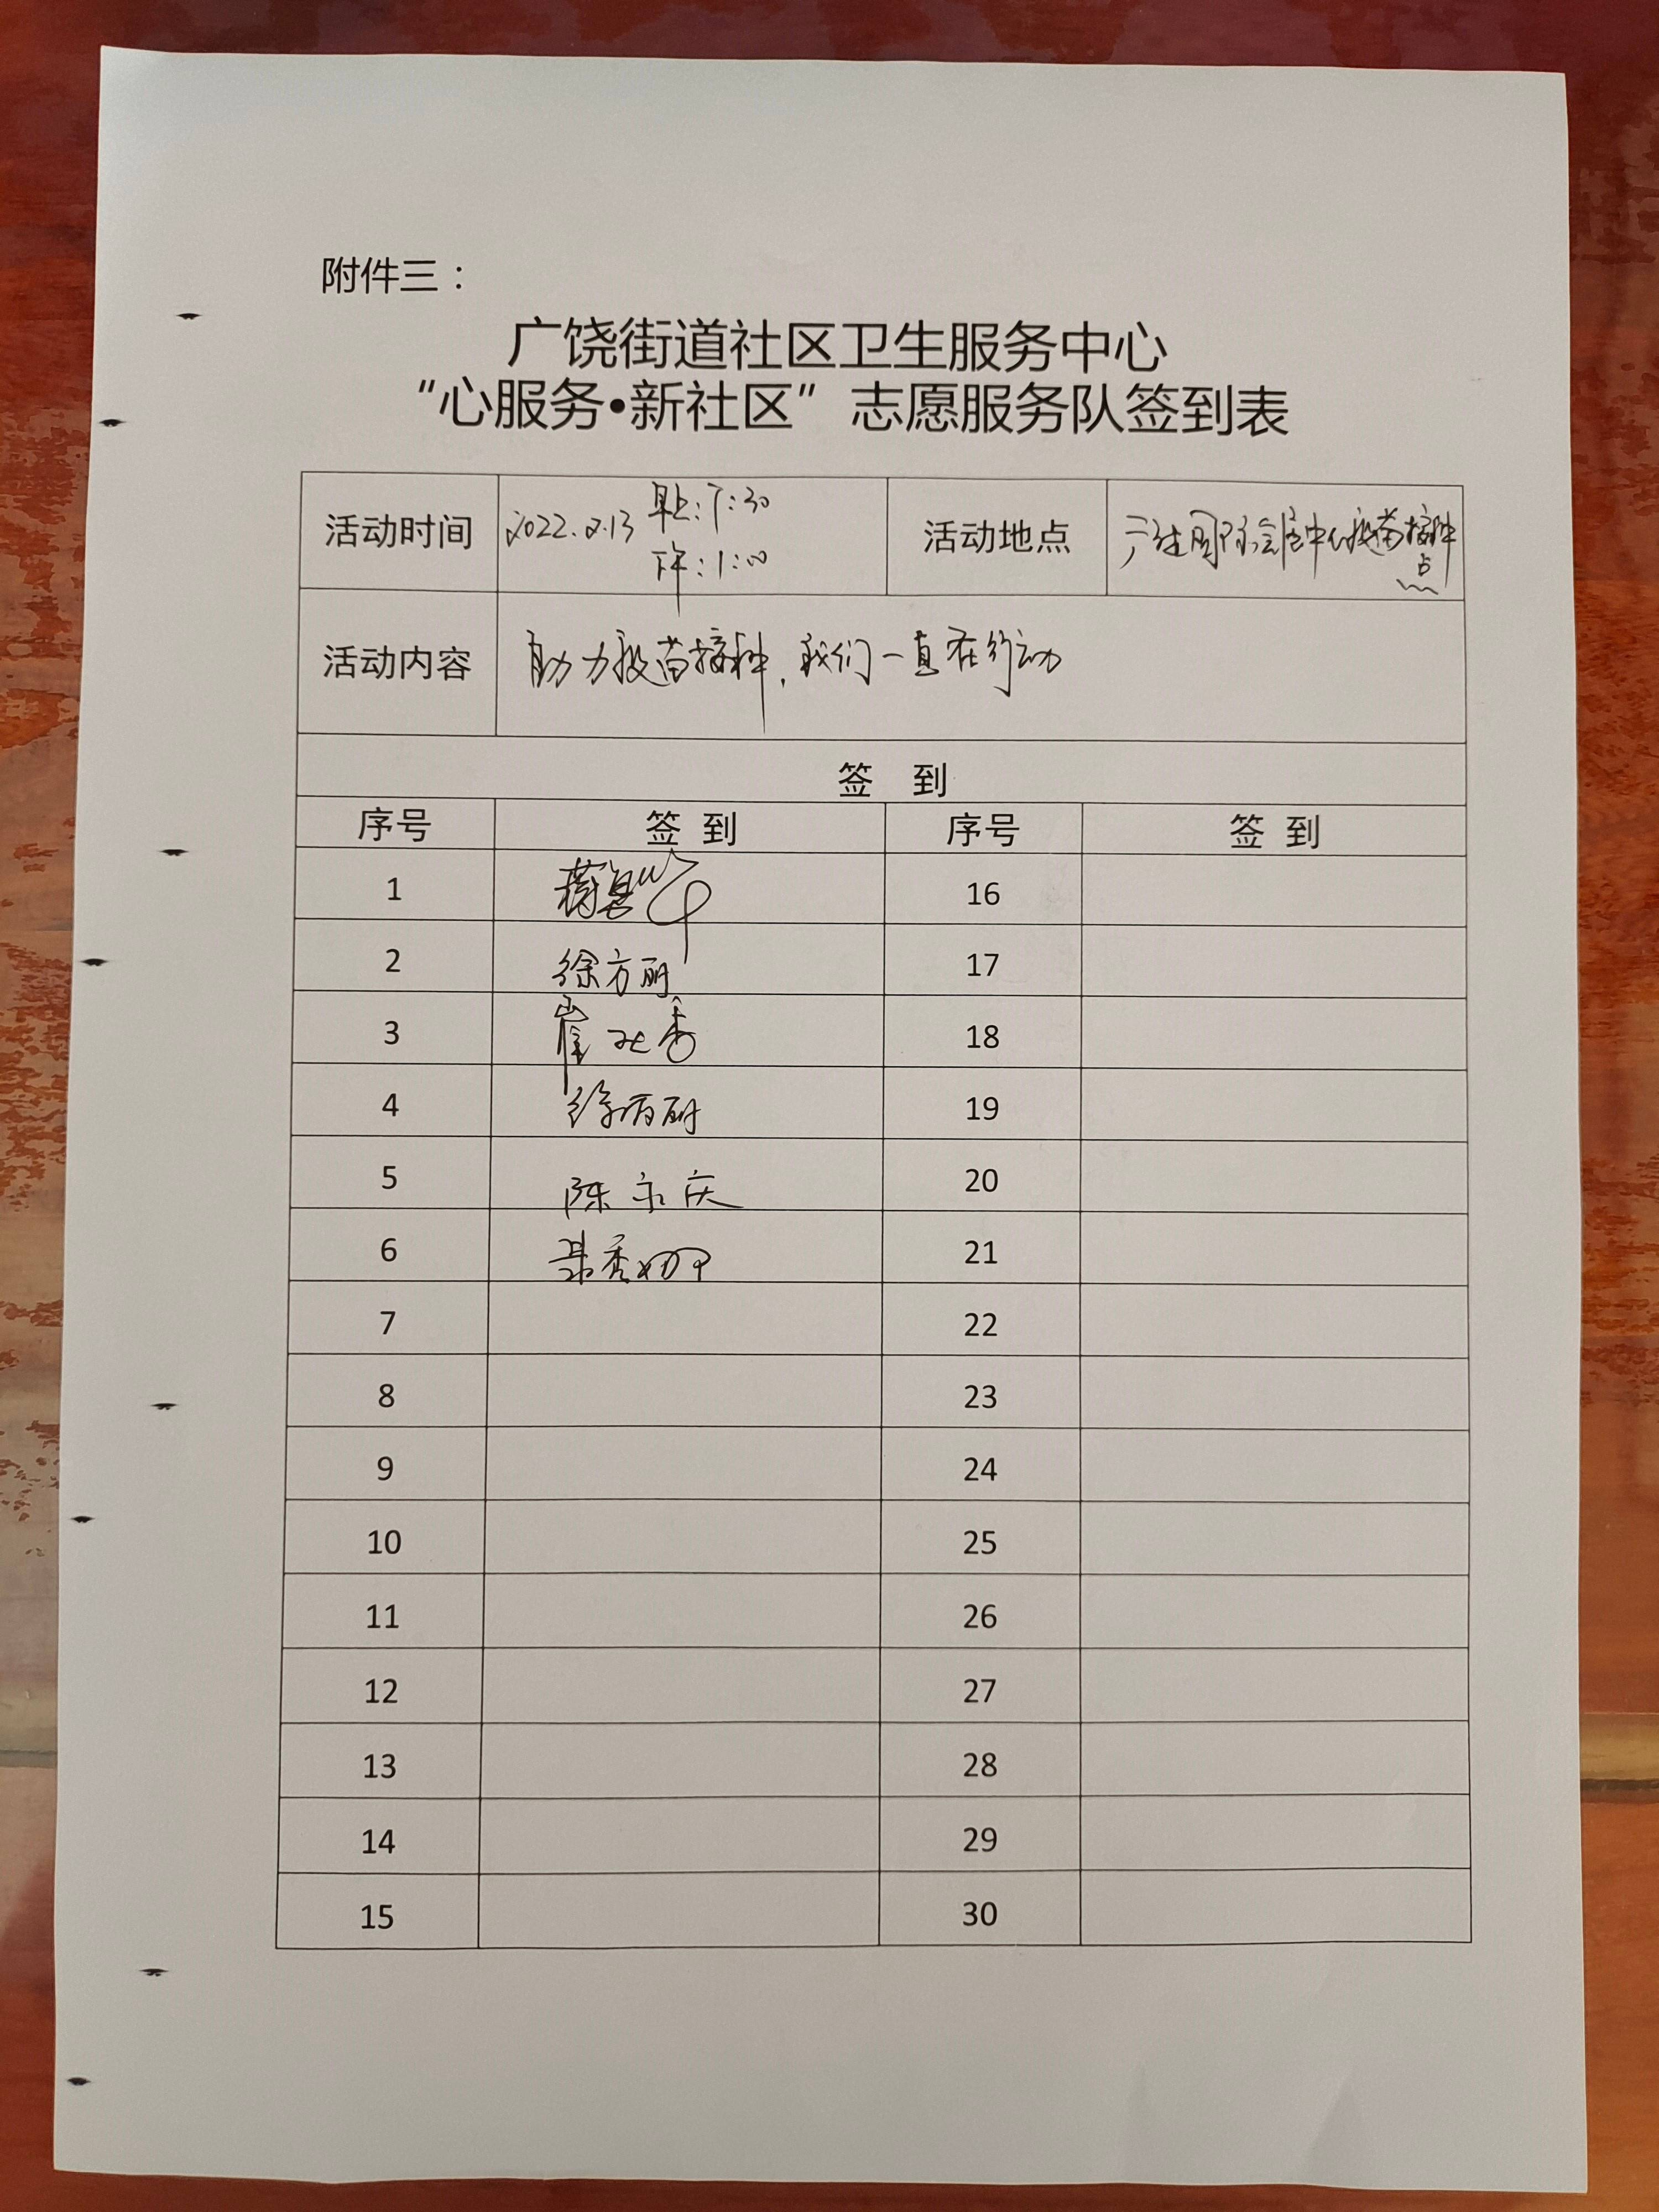 附件三：
广饶街道社区卫生服务中心
“心服务•新社区”志愿服务队签到表
活动时间 2022.2.13 早上:7:30 下午:1:00 活动地点 国际会展中心疫苗接种点
活动内容 助力疫苗接种，我们一直在行动
签 到
序号 签 到 序号 签 到
1 16
2 徐方丽 17
3 崔 香 18
4 徐 丽 19
5 陈永庆 20
6 秀 21
7 22
8 23
9 24
10 25
11 26
12 27
13 28
14 29
15 30